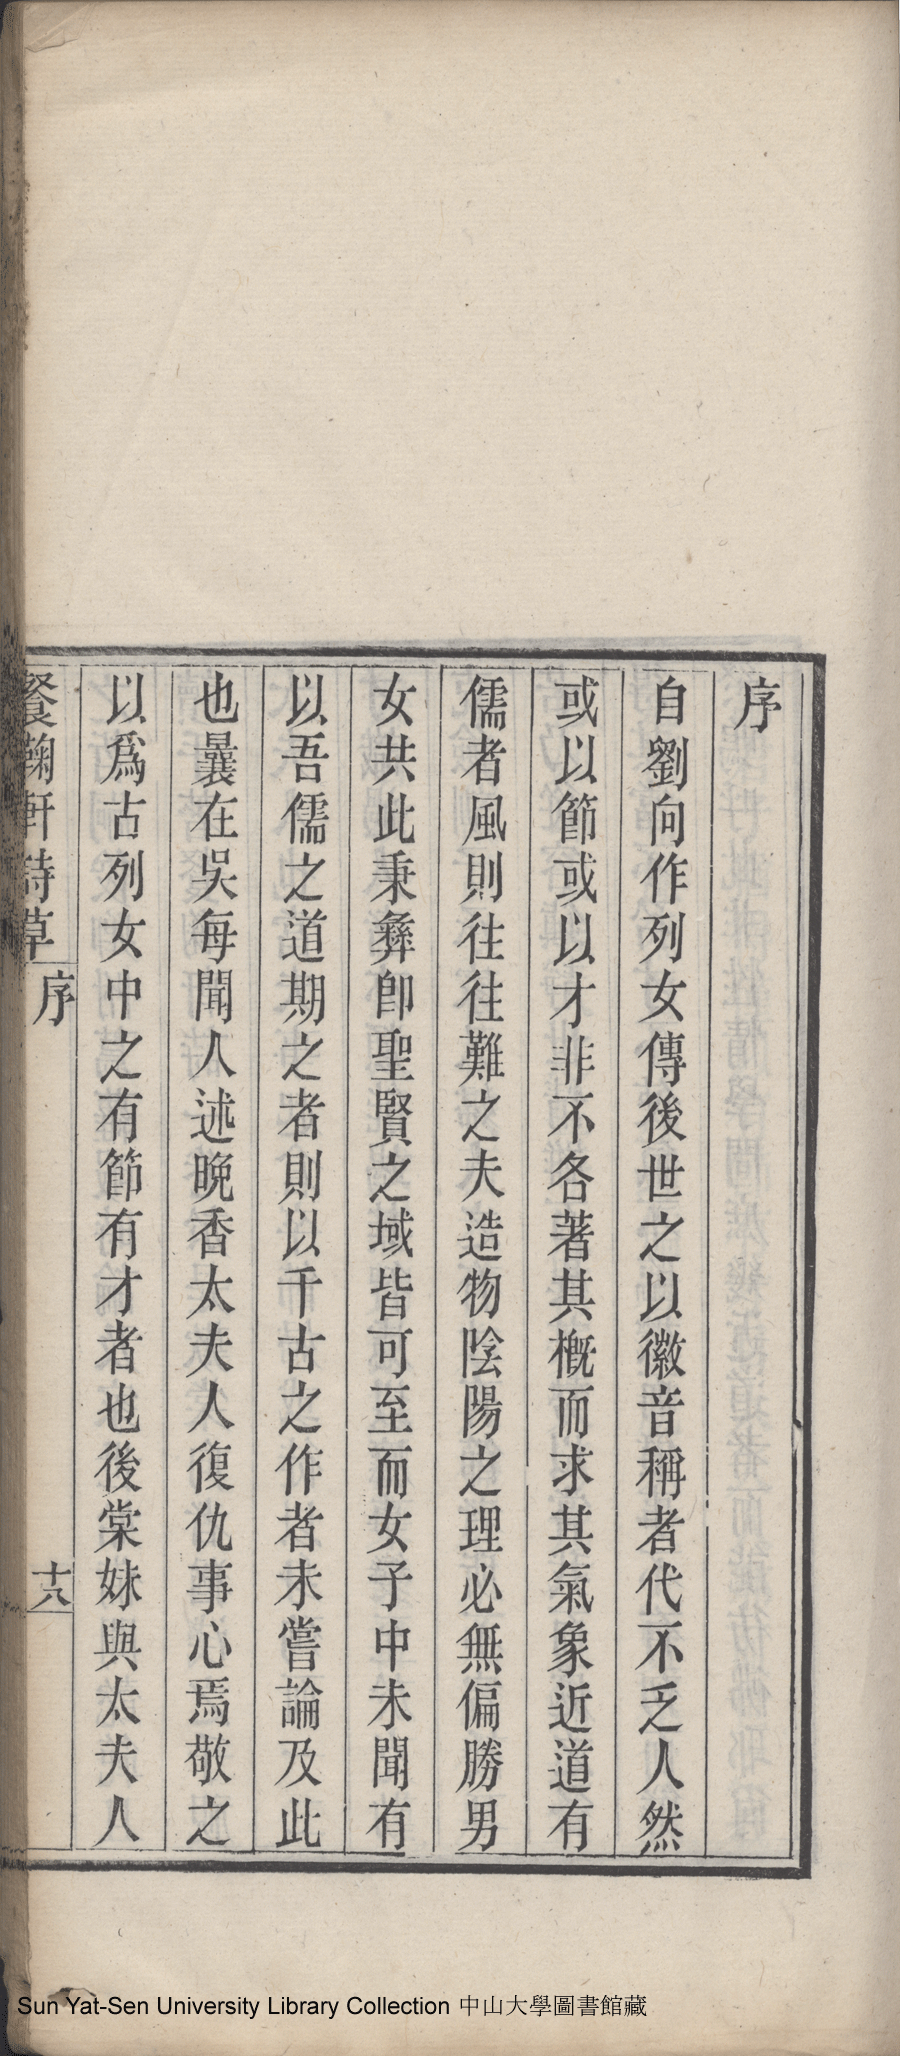 序
自劉向作列女傳後世之以徽音稱者代不乏人然
或以節或以才非不各著其槪而求其氣象近道有
儒者風則往往難之夫造物陰陽之理必無偏勝男
女共此秉彝卽聖賢之域皆可至而女子中未聞有
以吾儒之道期之者則以千古之作者未嘗論及此
也曩在吳每聞人述晩香太夫人復仇事心焉敬之
以爲古列女中之有節有才者也後棠妹與太夫人
餐鞠軒詩草
序
十六
Sun Yat-Sen University Library Collection 中山大學圖書館藏